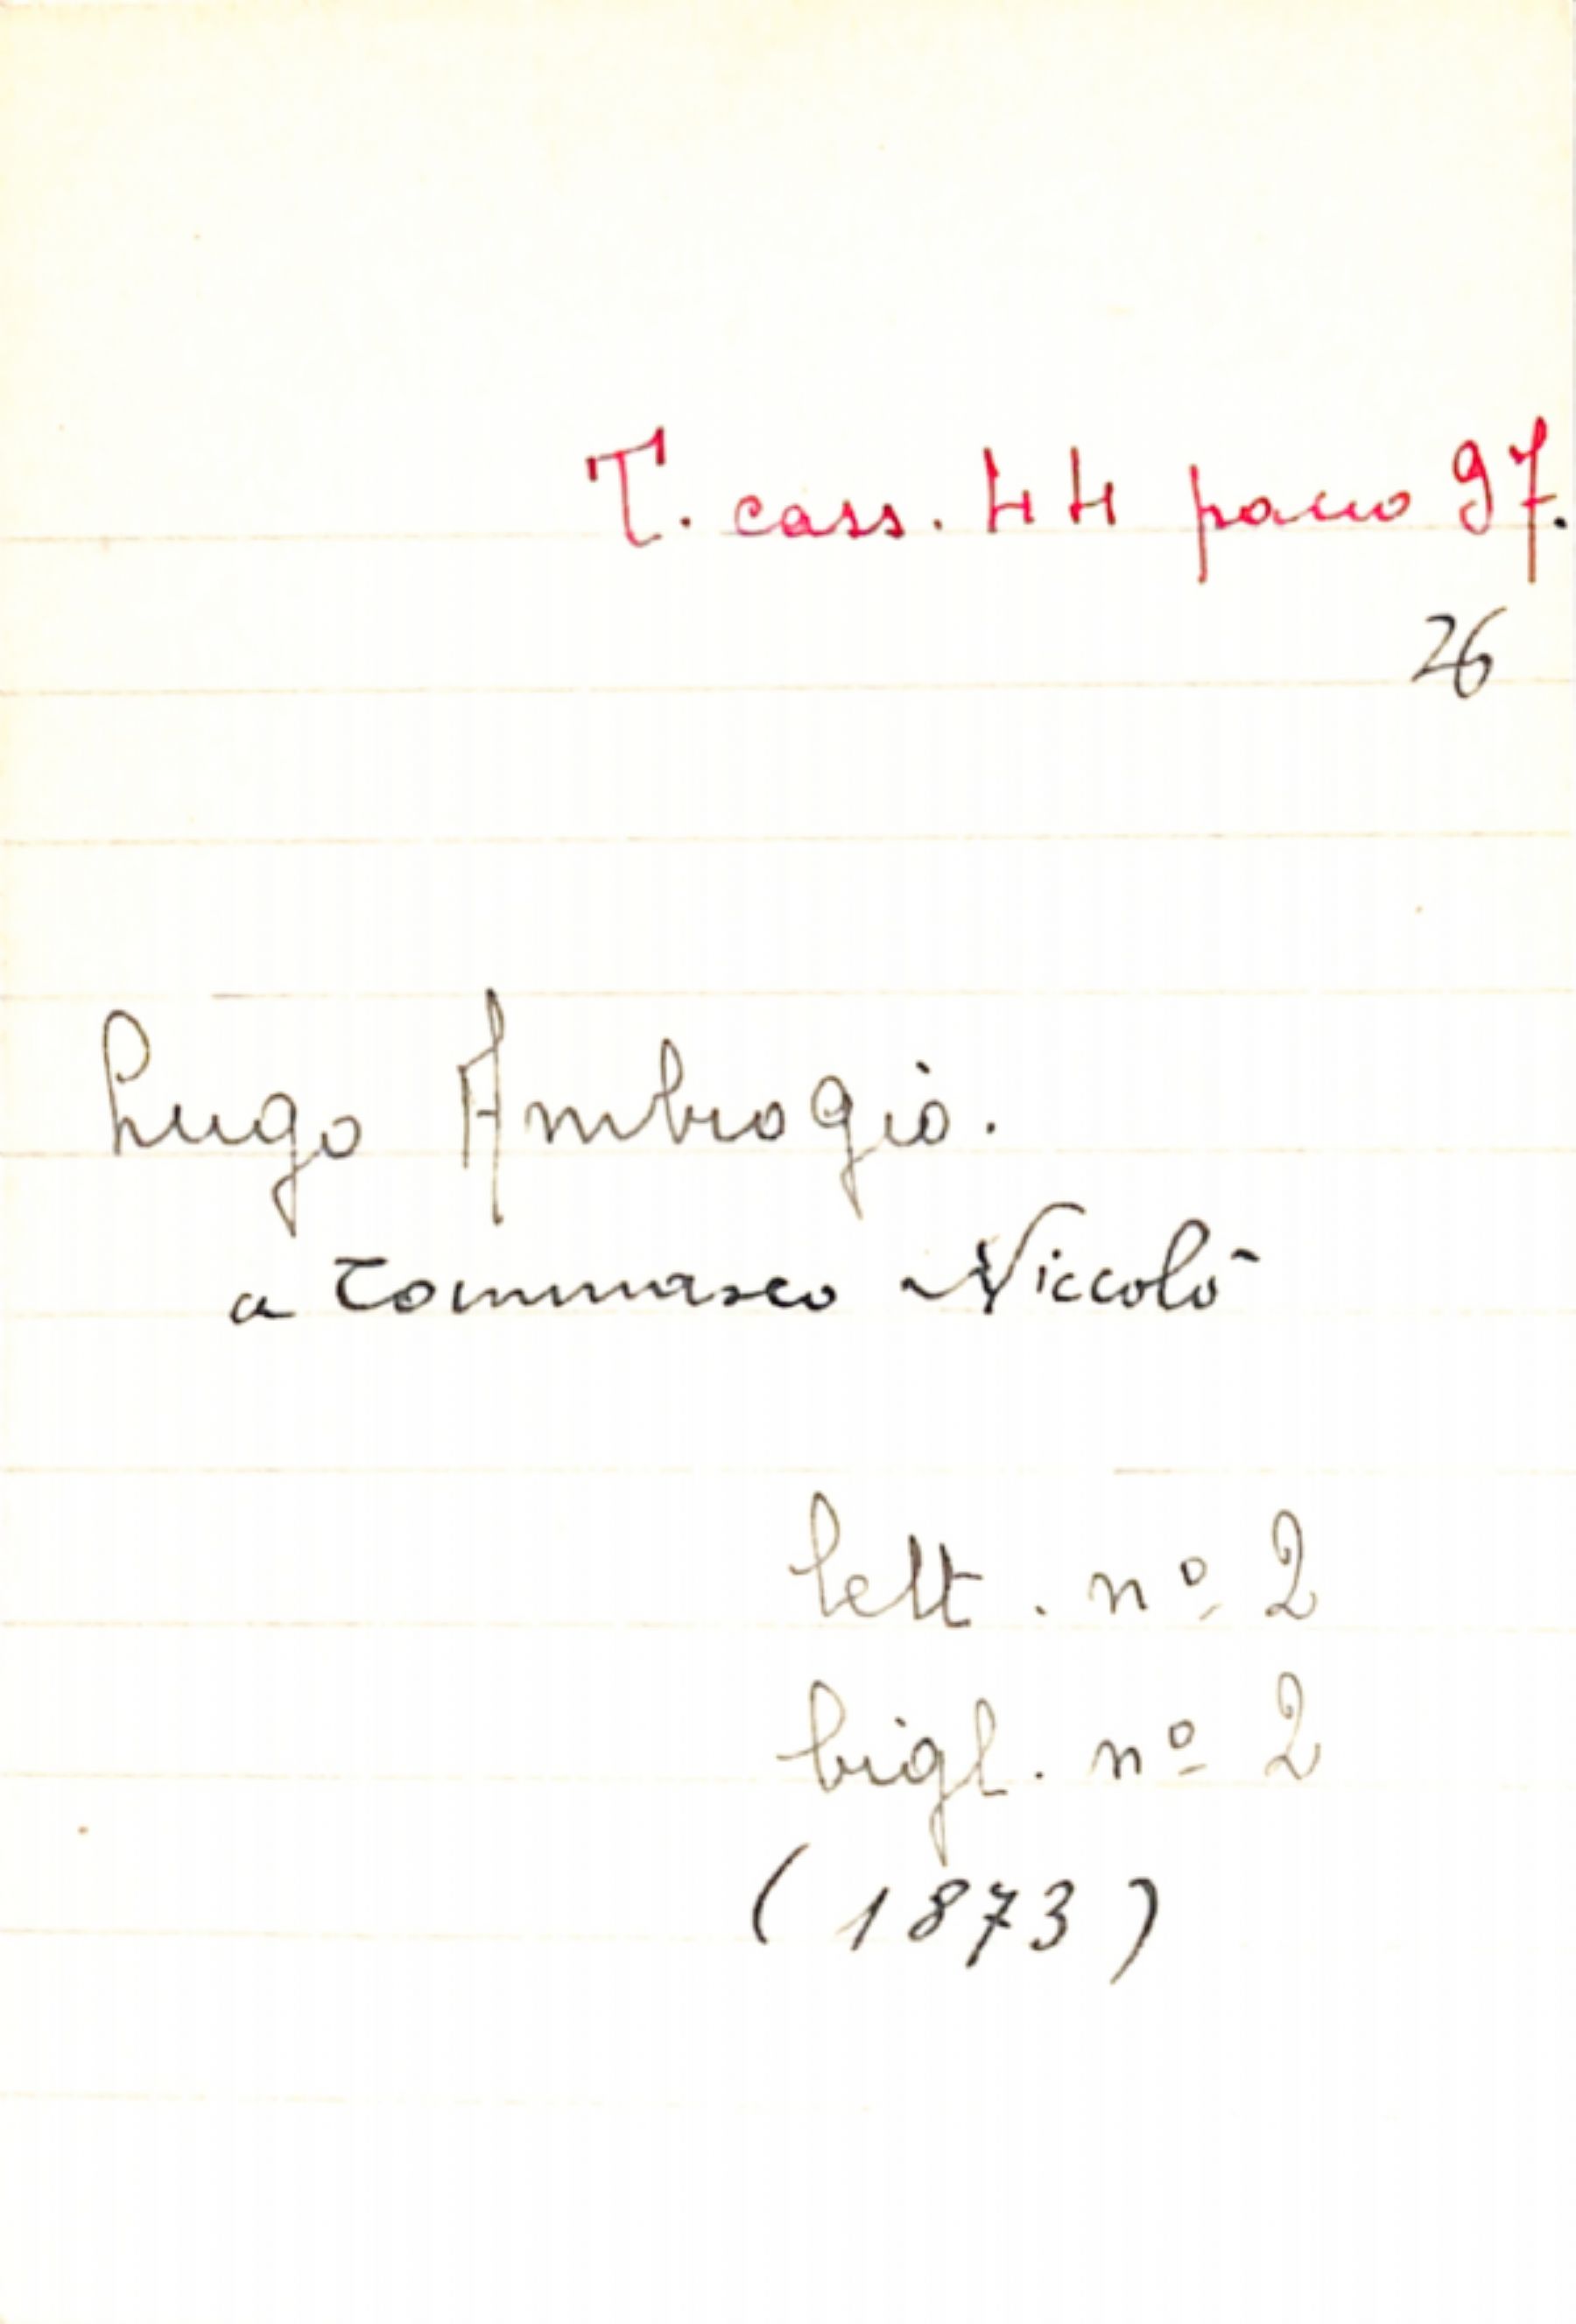 T. cass. 44 pacco 97.
26
Lugo Ambrogio.
a Tommaseo Niccolò
lett. nº 2
bigl. nº 2
(1873)